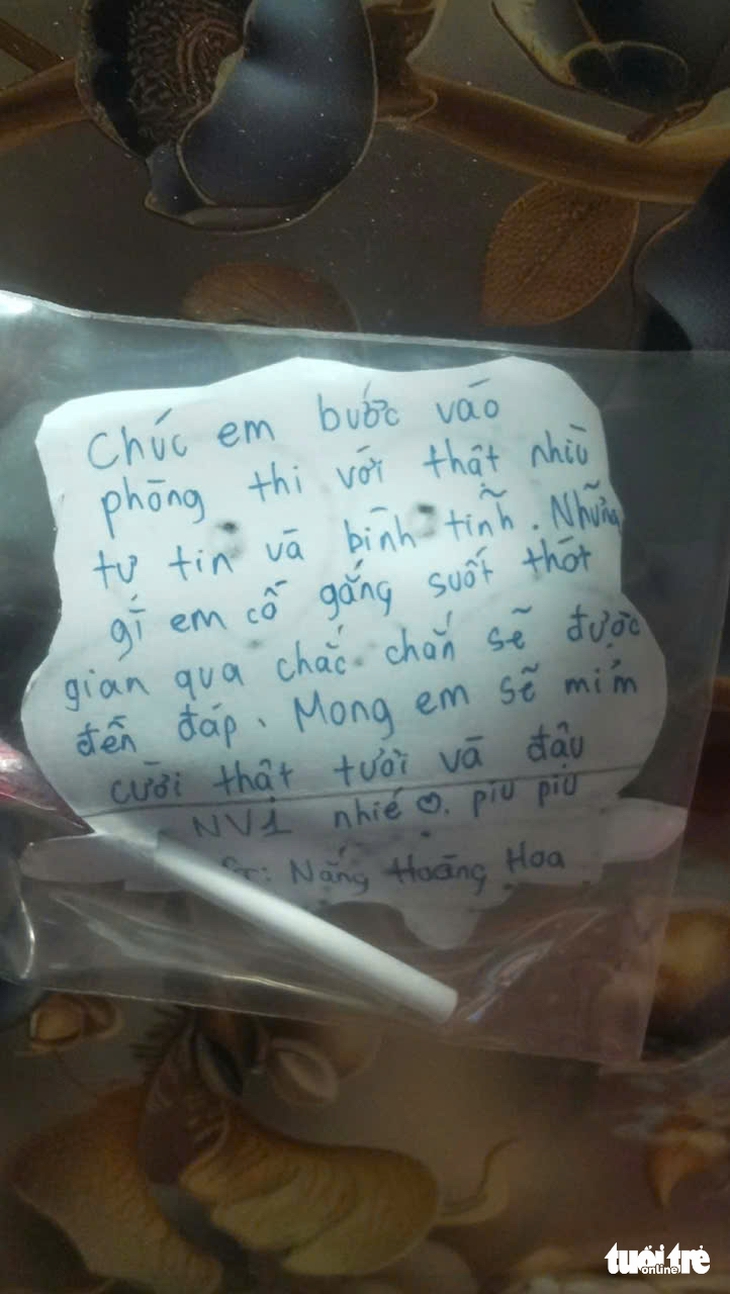 Chúc em bước vào
phòng thi với thật nhiù
tự tin và bình tĩnh. Những
gì em cố gắng suốt thót
gian qua chắc chắn sẽ được
đền đáp. Mong em sẽ mỉm
cười thật tươi và đậu
NV1 nhié ♡. piu piu
Fr: Nắng Hoàng Hoa
tuổi trẻ
online